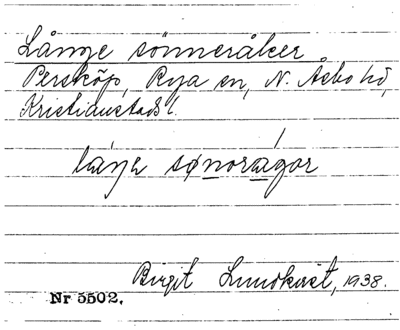 Långe sönneråker
Persköp, Rya sn, N. Åsbo hd,
Kristianstads l.
laŋe sønorágor
Birgit Lundkvist, 1938.
Nr 5502.